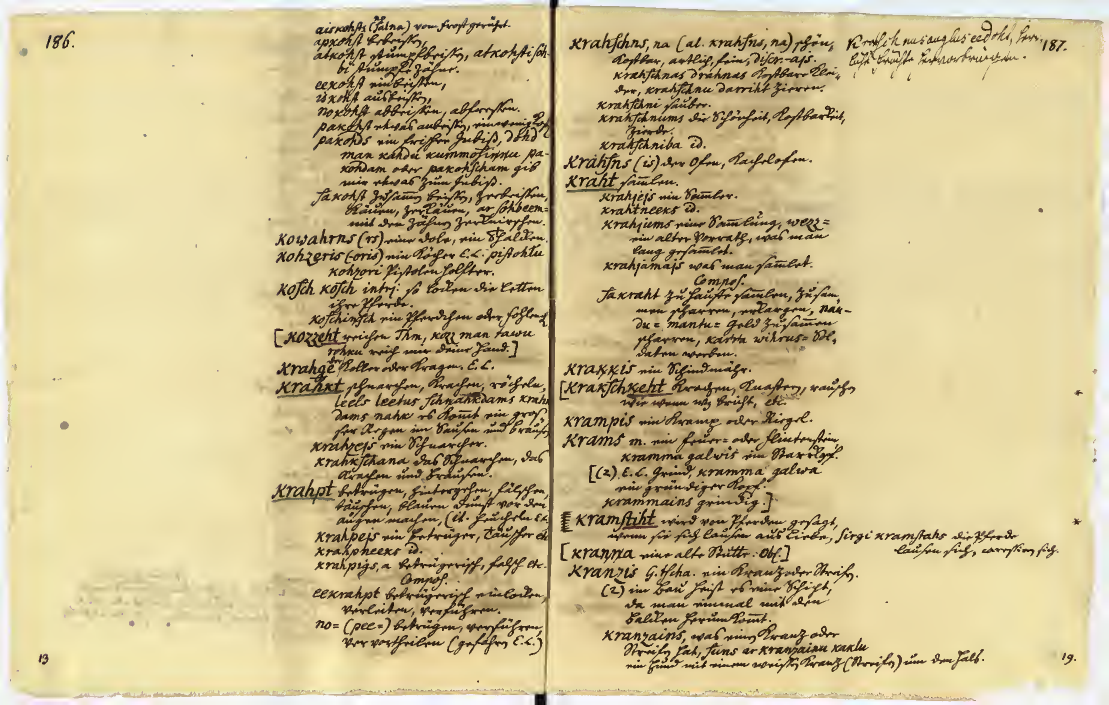 186.
aiskohsts (salna) vom Frost gerührt.
apkohst bebeißen,
atkohst stumpfbeißen, atkohsti soh-
bi stumpfe Zähne.
eekohst einbeißen,
iskohst ausbeißen,
nokohst abbeißen, abfressen.
pakohst etwas anbeißen, ein wenig
pakohds ein frisser Inbiß, dohd
man kahdu kummosinnu pa-
kohdam oder pakohscham gib
mir etwas zum Inbiß.
sakohst zusamen beißen, zerbeißen,
käuen, zerkäuen, ar sohbeem
mit den Zähnen zerknirschen.
Kowahrns (rs) eine Dole, ein
Kohzeris (oris) ein Köcher E.L. pistohlu
kohzeri Pistolenholfter.
Kosch kosch intrj. so locken die Letten
ihre Pferde.
koschinsch ein Pferdchen oder Fohlen
[Kozzeht reichen Ihm, kozz man tawu
rohku reich mir deine Hand.]
Krahge Koller oder Kragen. E.L.
Krahkt schnarchen, krachen, röcheln,
leels leetus schnahkdams krahk
dams nahk es kommt ein gros-
ser Regen im Sausen und brausen
krahzejs ein Schnarcher.
krahkschana das Schnarchen, das
Krachen und Brausen.
Krahpt betrügen, hintergehen, fälschen,
täuschen, blauen Dunst vor den
Augen machen, (it. heucheln E.L.
krahpejs ein Betrüger, Täuscher etc
krahpneeks id.
krahpigs, a betrügerisch, falsch etc.
Compos.
eekrahpt betrügerisch einlocken,
verleiten, verführen.
no= (pee=) betrügen, verführen,
vervortheilen (gefahren E.L.)
13
Krahschns, na (al. krahsns, na) schön,
kostbar, artlich, fein,
krahschnas drahnas kostbare Klei-
der, krahschnu darriht zieren.
krahschni sauber.
krahschnums die Schönheit, Kostbarkeit,
Zierde.
krahschniba id.
Krahsns (is) der Ofen, Kachelofen.
Kraht samlen.
krahjejs ein Samler.
krahtneeks id.
krahjums eine Samlung, wezz=
ein alter Vorrath, was man
lang gesamlet.
krahjamajs was man samlet.
Compos.
sakraht zu Hauffe samlen, zusam-
men scharren, erkargen, nau-
du= mantu= Geld zusammen
scharren, karra wihrus= Sol-
daten werben.
Krakkis ein Schindmähr.
[Krakschkeht krachen, knastern, rauschen
wie wenn was bricht, etc.
Krampis ein Kramp oder Riegel.
Krams m. ein Feuer= oder Flintenstein,
kramma galwis ein Starrkopf.
[(2) E.L. Grind, kramma galwa
ein grindiger Kopf.
krammains grindig.]
Kramstiht wird von Pferden gesagt,
wenn sie sich lausen aus Liebe, sirgi kramstahs die Pferde
lausen sich,
[Kranna eine alte Stutte. Obs.]
Kranzis G. tscha. ein Kranz oder Streifen.
(2) im Bau heist es eine Schicht,
da man einmal mit den
Balken herum komt.
kranzains, was einen Kranz oder
Streifen hat, suns ar kranzainu kaklu
ein Hund mit einem weissen Kranz (Streifen) um den Hals.
187.
19.